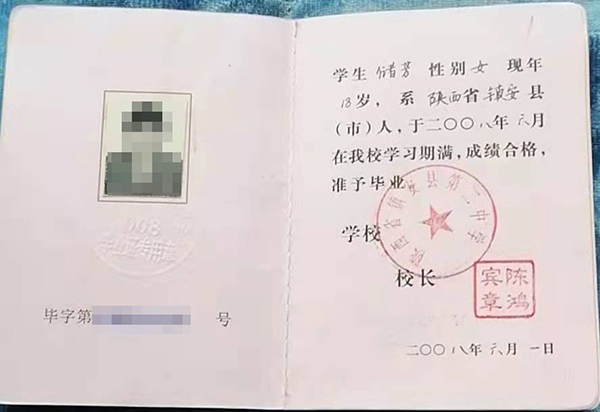 008
毕业证专用章
毕字第 号
学生 储芳 性别 女 现年
18岁，系 陕西省 镇安 县
（市）人，于二〇〇八年六月
在我校学习期满，成绩合格，
准予毕业
陕西省镇安县第二中学
学校
校长
陈鸿
宾章
二〇〇八年六月一日